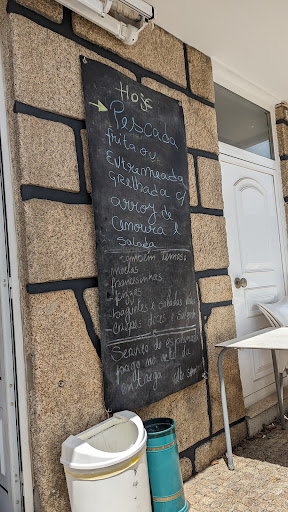 Hoje
Pescada
frita ou
Entremeada
grelhada c/
arroz de
cenoura e
salada
também temos
moelas
francesinhas
pizzas
baguetes e saladas
crepes doces e salgados
Serviço de esplanada
pago no ato da
entrega